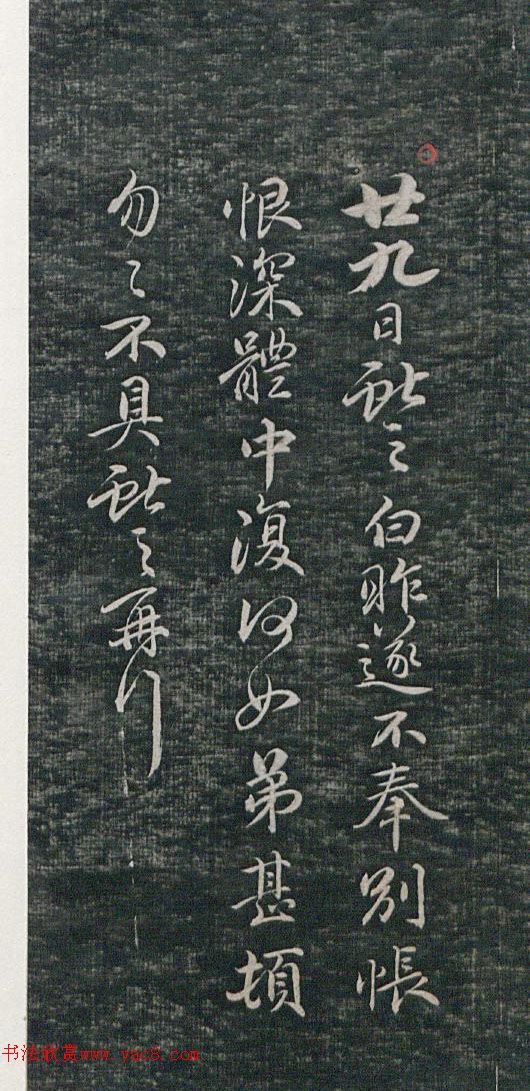 廿九日獻之白昨遂不奉別悵
恨深體中復何如弟甚頓
勿〻不具獻之再拜
书法欣赏www.yac8.com